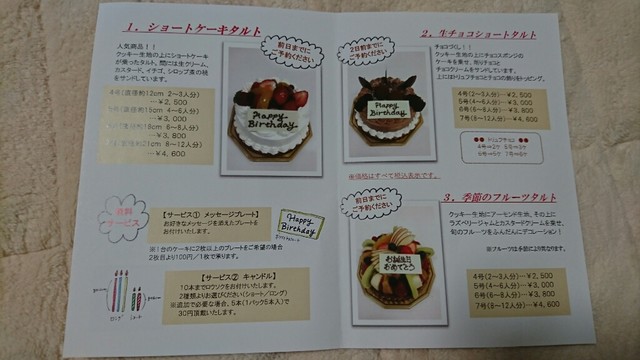 1．ショートケーキタルト
人気商品！！
クッキー生地の上にショートケーキ
が乗ったタルト。間には生クリーム、
カスタード、イチゴ、シロップ煮の桃
をサンドしています。
4号（直径約12cm 2～3人分）
…￥2,500
5号（直径約15cm 4～6人分）
…￥3,000
6号（直径約18cm 6～8人分）
…￥3,800
7号（直径約21cm 8～12人分）
…￥4,600
前日までに
ご予約ください
Happy
Birthday
無料
サービス
【サービス① メッセージプレート】
お好きなメッセージを添えたプレートを
お付けいたします。
Happy
Birthday
※1台のケーキに2枚以上のプレートをご希望の場合
2枚目より100円／1枚で承ります。
【サービス② キャンドル】
10本までロウソクをお付けいたします。
2種類よりお選びください（ショート／ロング）
※追加で必要な場合、5本（1パック5本入）で
30円頂戴いたします。
ロング
ショート
2．生チョコショートタルト
2日前までに
ご予約ください
Happy
Birthday
チョコづくし！！
クッキー生地の上にチョコスポンジの
ケーキを乗せ、削りチョコと
チョコクリームをサンドしています。
上にはトリュフチョコとチョコの飾りをトッピング。
4号（2～3人分）…￥2,500
5号（4～6人分）…￥3,000
6号（6～8人分）…￥3,800
7号（8～12人分）…￥4,600
トリュフチョコ
4号→2ケ 5号→3ケ
6号→5ケ 7号→6ケ
※価格はすべて税込表示です。
3．季節のフルーツタルト
前日までに
ご予約ください
お誕生日
おめでとう
クッキー生地にアーモンド生地、その上に
ラズベリージャムとカスタードクリームを乗せ、
旬のフルーツをふんだんにデコレーション！
※フルーツは季節により異なります。
4号（2～3人分）…￥2,500
5号（4～6人分）…￥3,000
6号（6～8人分）…￥3,800
7号（8～12人分）…￥4,600